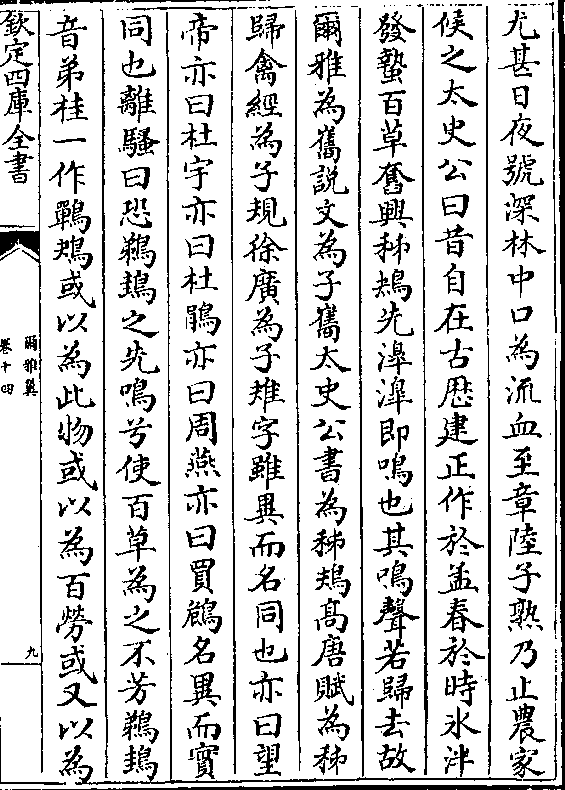 尤甚日夜號深林中口為流血至章陸子熟乃止農家
候之太史公曰昔自在古厯建正作於孟春於時氷泮
發蟄百草奮興秭鳺先滜滜即鳴也其鳴聲若歸去故
爾雅為巂說文為子巂太史公書為秭鳺髙唐賦為秭
歸禽經為子規徐廣為子雉字雖異而名同也亦曰望
帝亦曰杜宇亦曰杜鵑亦曰周燕亦曰買𪇆名異而實
同也離騷曰恐鵜鴂之先鳴兮使百草為之不芳鵜鴂
音弟桂一作鷤鴂或以為此物或以為百勞或又以為
欽定四庫全書
爾雅翼
卷十四
九